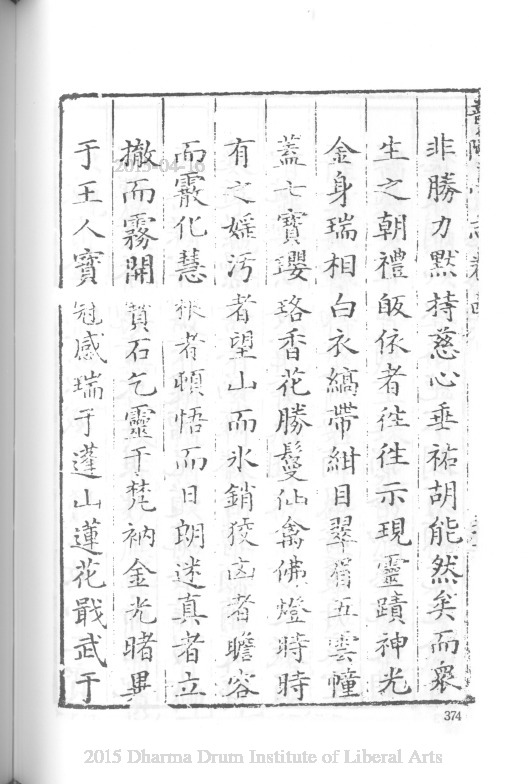 非勝力默持慈心垂祐胡能然矣而衆
生之朝禮皈依者徃徃示現靈蹟神光
金身瑞相白衣縞帶紺目翠眉五雲幢
蓋七寶瓔珞香花勝鬘仙禽佛燈時時
有之婬汚者望山而氷銷狡凶者瞻容
而霰化慧 者頓悟而日朗迷真者立
撤而霧開 石乞靈于梵衲金光睹異
于王人寶冠感瑞于蓬山蓮花戢武于
374
2015-04-16
2015 Dharma Drum Institute of Liberal Arts